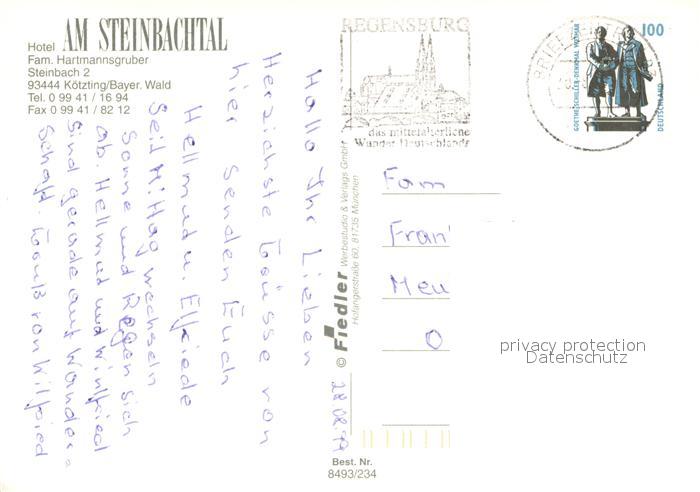 Hotel AM STEINBACHTAL
Fam. Hartmannsgruber
Steinbach 2
93444 Kötzting/Bayer. Wald
Tel. 0 99 41 / 16 94
Fax 0 99 41 / 82 12
REGENSBURG
das mittelalterliche
Wunder Deutschlands
100
GOETHE-SCHILLER-DENKMAL WEIMAR
DEUTSCHLAND
Hallo Ihr Lieben
Herzlichste Grüsse von
hier senden Euch
Hellmut u. Elfriede
Seit Mittag wechseln
Sonne und Regen sich
ab Hellmut und Winfried
sind gerade auf Wander-
schaft. Gruß von Wilfried
28.08.
© Fiedler Werbestudio & Verlags GmbH
Hofangerstraße 60, 81735 München
Fam
Fran
Meu
O
privacy protection
Datenschutz
Best. Nr.
8493/234